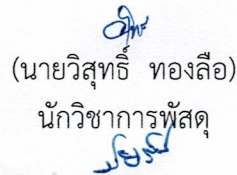 (นายวิสุทธิ์ ทองลือ)
นักวิชาการพัสดุ